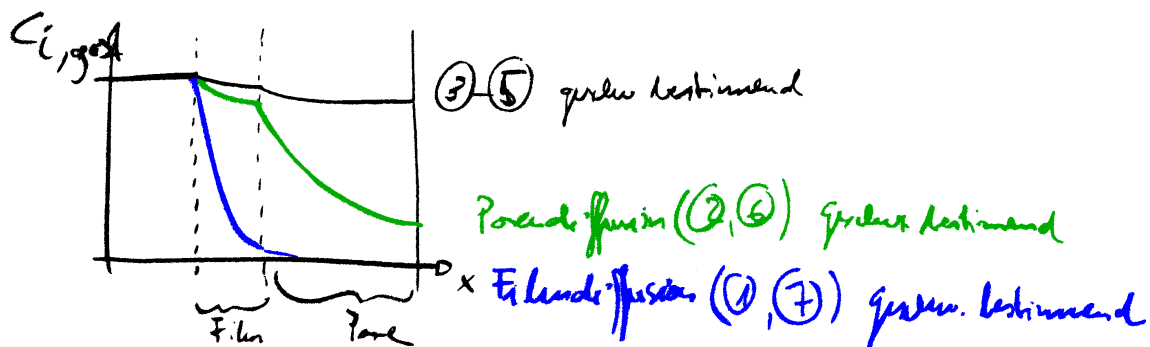 Ci, gas
③-⑤ geschw bestimmend
Porendiffusion (②,⑥) geschw bestimmend
x Filmdiffusion (①,⑦) geschw. bestimmend
Film Pore